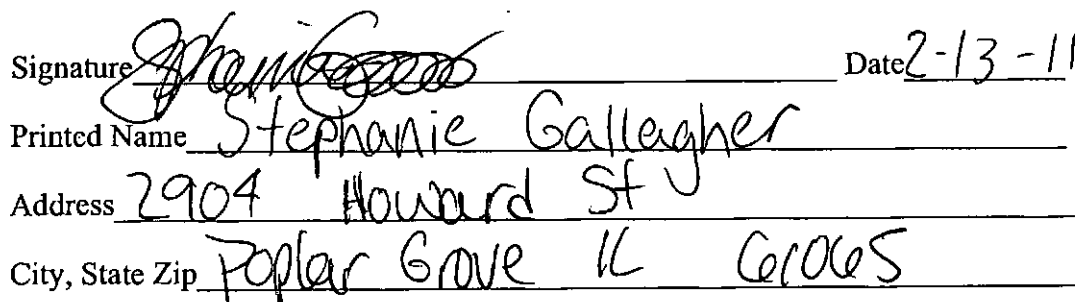 Signature Date 2-13-11
Printed Name Stephanie Gallagher
Address 2904 Howard St
City, State Zip Poplar Grove IL 61065